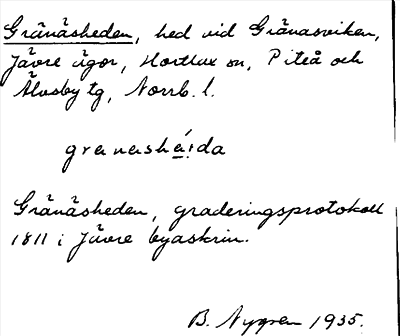 Gränäsheden, hed vid Gränäsviken,
Jävre ägor, Hortlax sn, Piteå och
Älvsby tg, Norrb. l.
granashä́ida
Gränäsheden, graderingsprotokoll
1811 i Jävre byaskrin.
B. Nygren 1935.